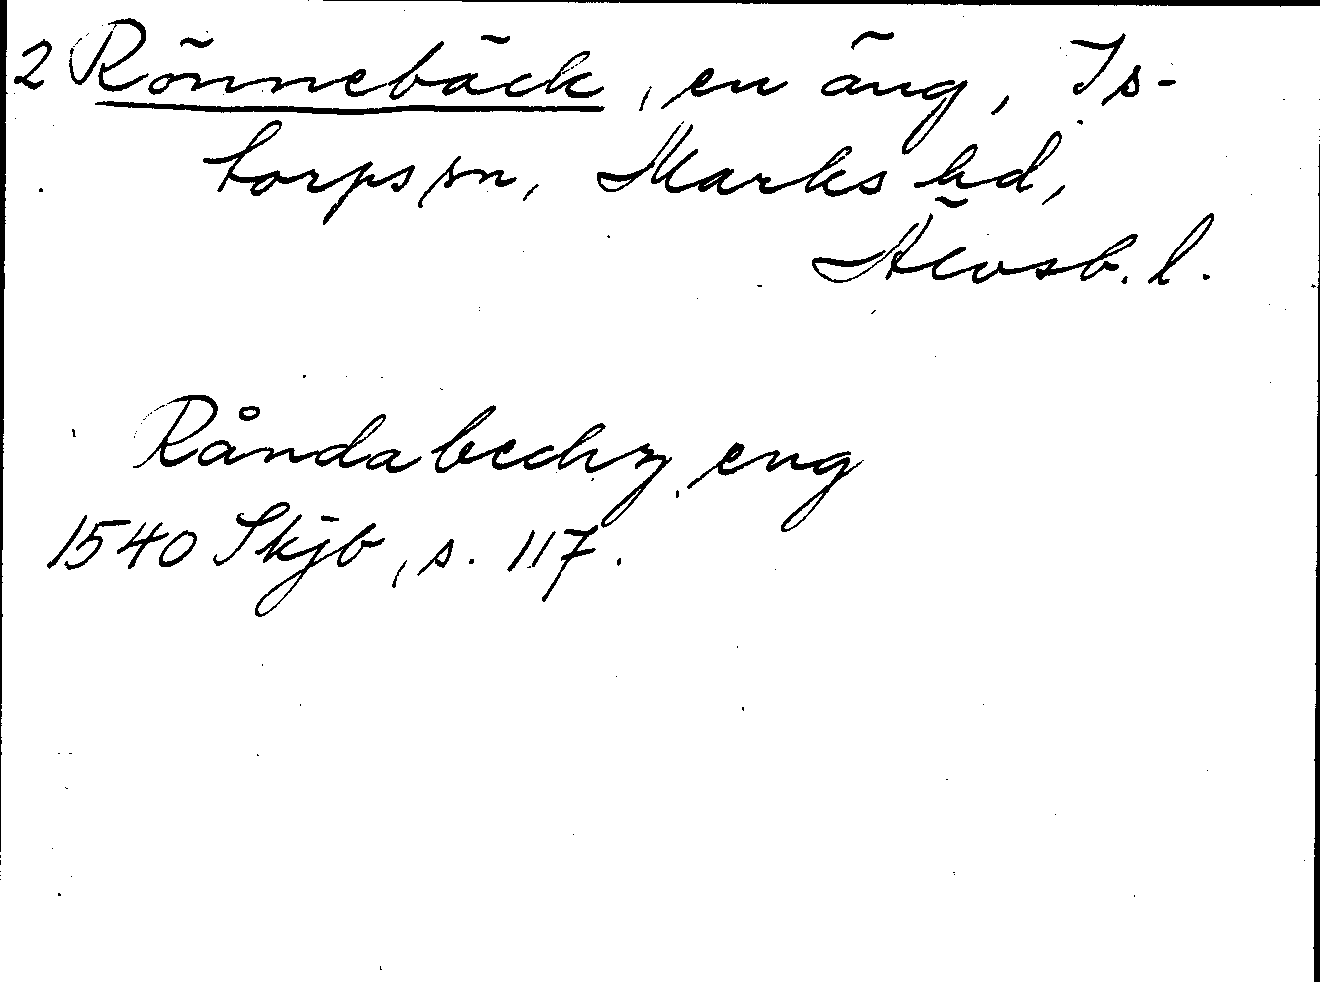 2 Rönnebäck, en äng, Is-
torps sn, Marks hd,
Älvsb. l.
Råndabechz eng
1540 Skjb, s. 117.